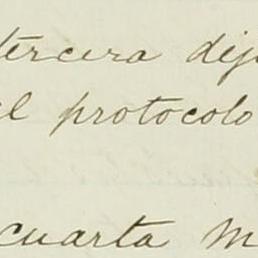 tercera dij
el protocolo
cuarta m